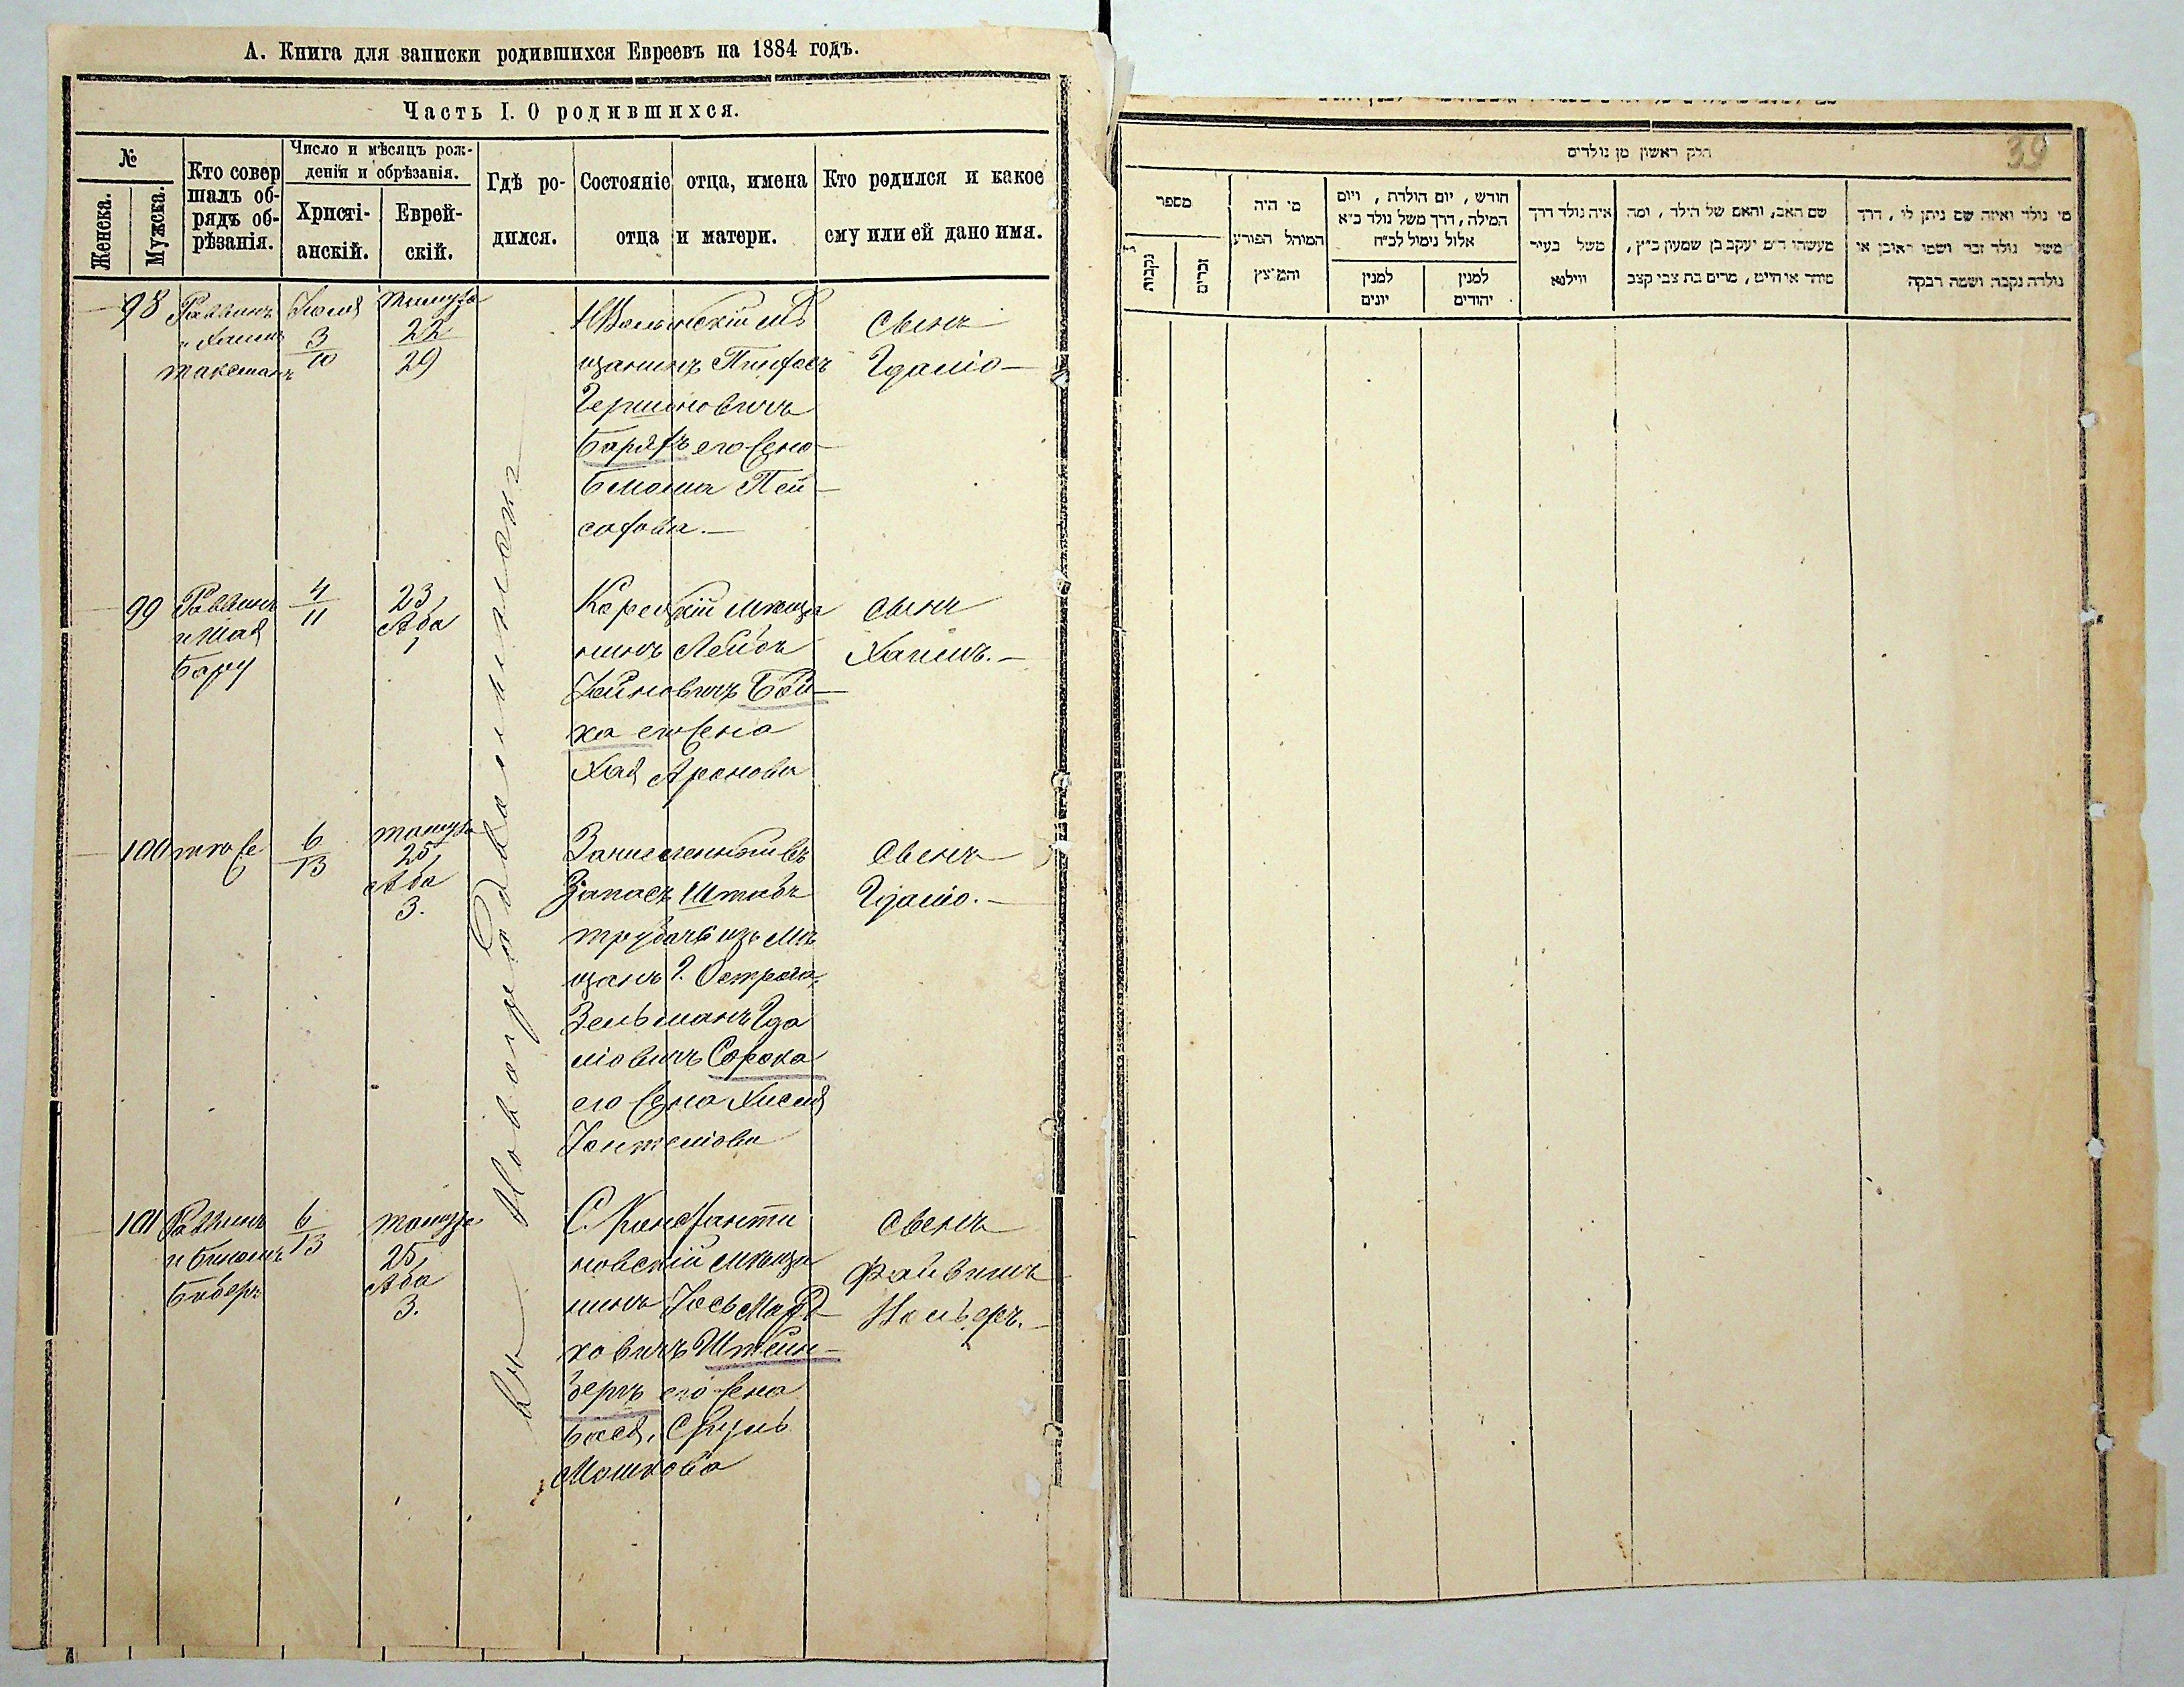 А. Книга для записки родившихся Евреевъ на 1884 годъ.
Часть I. О родившихся.
№
Женска.
Мужска.
Кто совер
шалъ об-
рядъ об-
рѣзанія.
Число и мѣсяцъ рож-
денія и обрѣзанія.
Христі-
анскій.
Еврей-
скій.
Гдѣ ро-
дился.
Состояніе отца, имена
отца и матери.
Кто родился и какое
ему или ей дано имя.
98
Раввинъ
Таксманъ
Іюля
3
10
Тамуза
22
29
Н Волынскій мѣ
щанинъ Пинхасъ
Гершоновичъ
его жена
Пей-
сахова.—
сынъ
Гдаліо—
99
Раввинъ
и Шая
Бару
4
11
23,
Аба
1
Корецкій мѣща
нинъ Лейбъ
Хаимовичъ Бой-
ко его жена
Хая Аронова
сынъ
Хаимъ.—
100
тоже
6
13
Тамуза
25,
Аба
3.
Зачисленный въ
Запасъ Штабъ
трубачъ изъ мѣ
щанъ г. Острога
Зельманъ Гда
ліовичъ Сорока
его жена
сынъ
Гдаліо.—
101
Раввинъ
и
6
13
Тамуза
25,
Аба
3.
С. Константи
новскій мѣща
нинъ Іось Мордъ
ковичъ Штейн-
бергъ его жена
Бася, Фрумъ
Мошкова
сынъ
Файвишъ
Вольфъ.—
Въ Новоградволынскѣ
39
חלק ראשון מן נולדים
מספר
נקבות
זכרים
מי היה
המוהל הפורע
והמוצץ
חודש, יום הולדת, ויום
המילה, דרך משל נולד כ״א
אלול נימול לכ״ח
למנין
יונים
למנין
יהודים
איה נולד דרך
משל בעיר
ווילנא
שם האב, והאם של הילד, ומה
מעשהו ד״מ יעקב בן שמעון כ״ץ,
סוחר או חייט, מרים בת צבי קצב
מי נולד ואיזה שם ניתן לו, דרך
משל נולד זכר ושמו ראובן או
נולדה נקבה ושמה רבקה